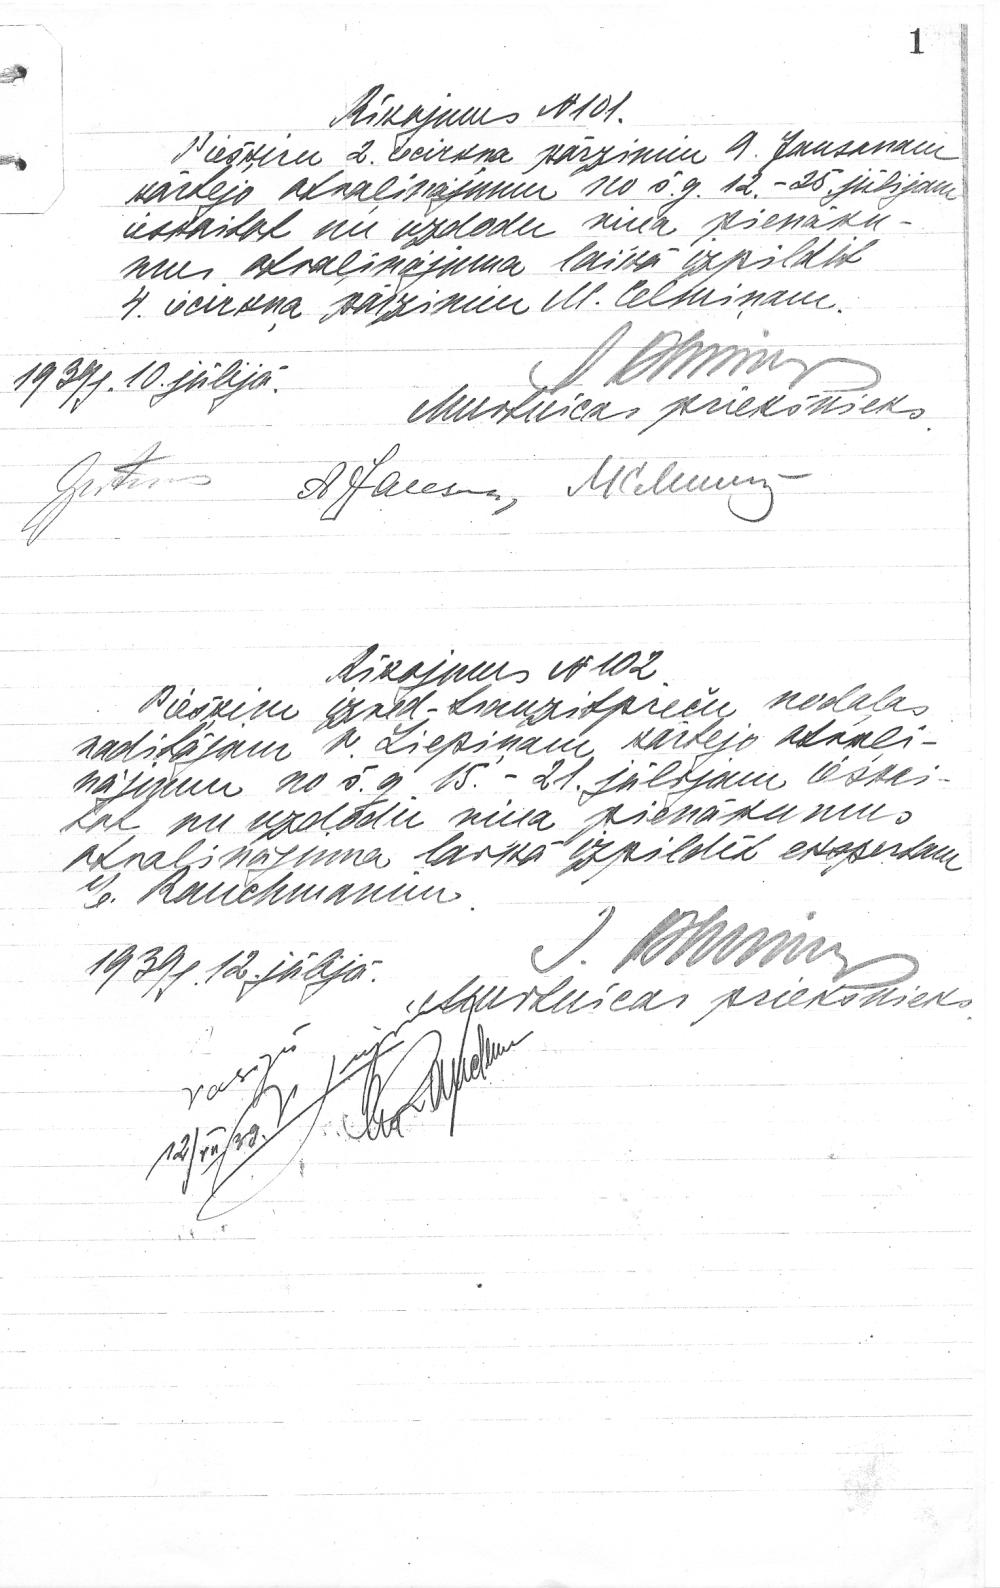 1
Rīkojums № 101.
Piešķiru 2. iecirkņa pārzinim A. Jansonam
kārtējo atvaļinājumu no š.g. 12. - 25. jūlijam
ieskaitot un uzdodu viņa pienāku-
mus atvaļinājuma laikā izpildīt
4. iecirkņa pārzinim M. Celmiņam.
1939g. 10. jūlijā.
Muitnīcas priekšnieks.
Rīkojums № 102.
Piešķiru izved-tranzitpreču nodaļas
vadītājam P. Liepiņam kārtējo atvaļi-
nājumu no š.g. 15. - 21. jūlijam ieskai-
tot un uzdodu viņa pienākumus
atvaļinājuma laikā izpildīt ekspertam
Rauchmanim.
1939g. 12. jūlijā.
J.
Muitnīcas priekšnieks.
12/VII/39.